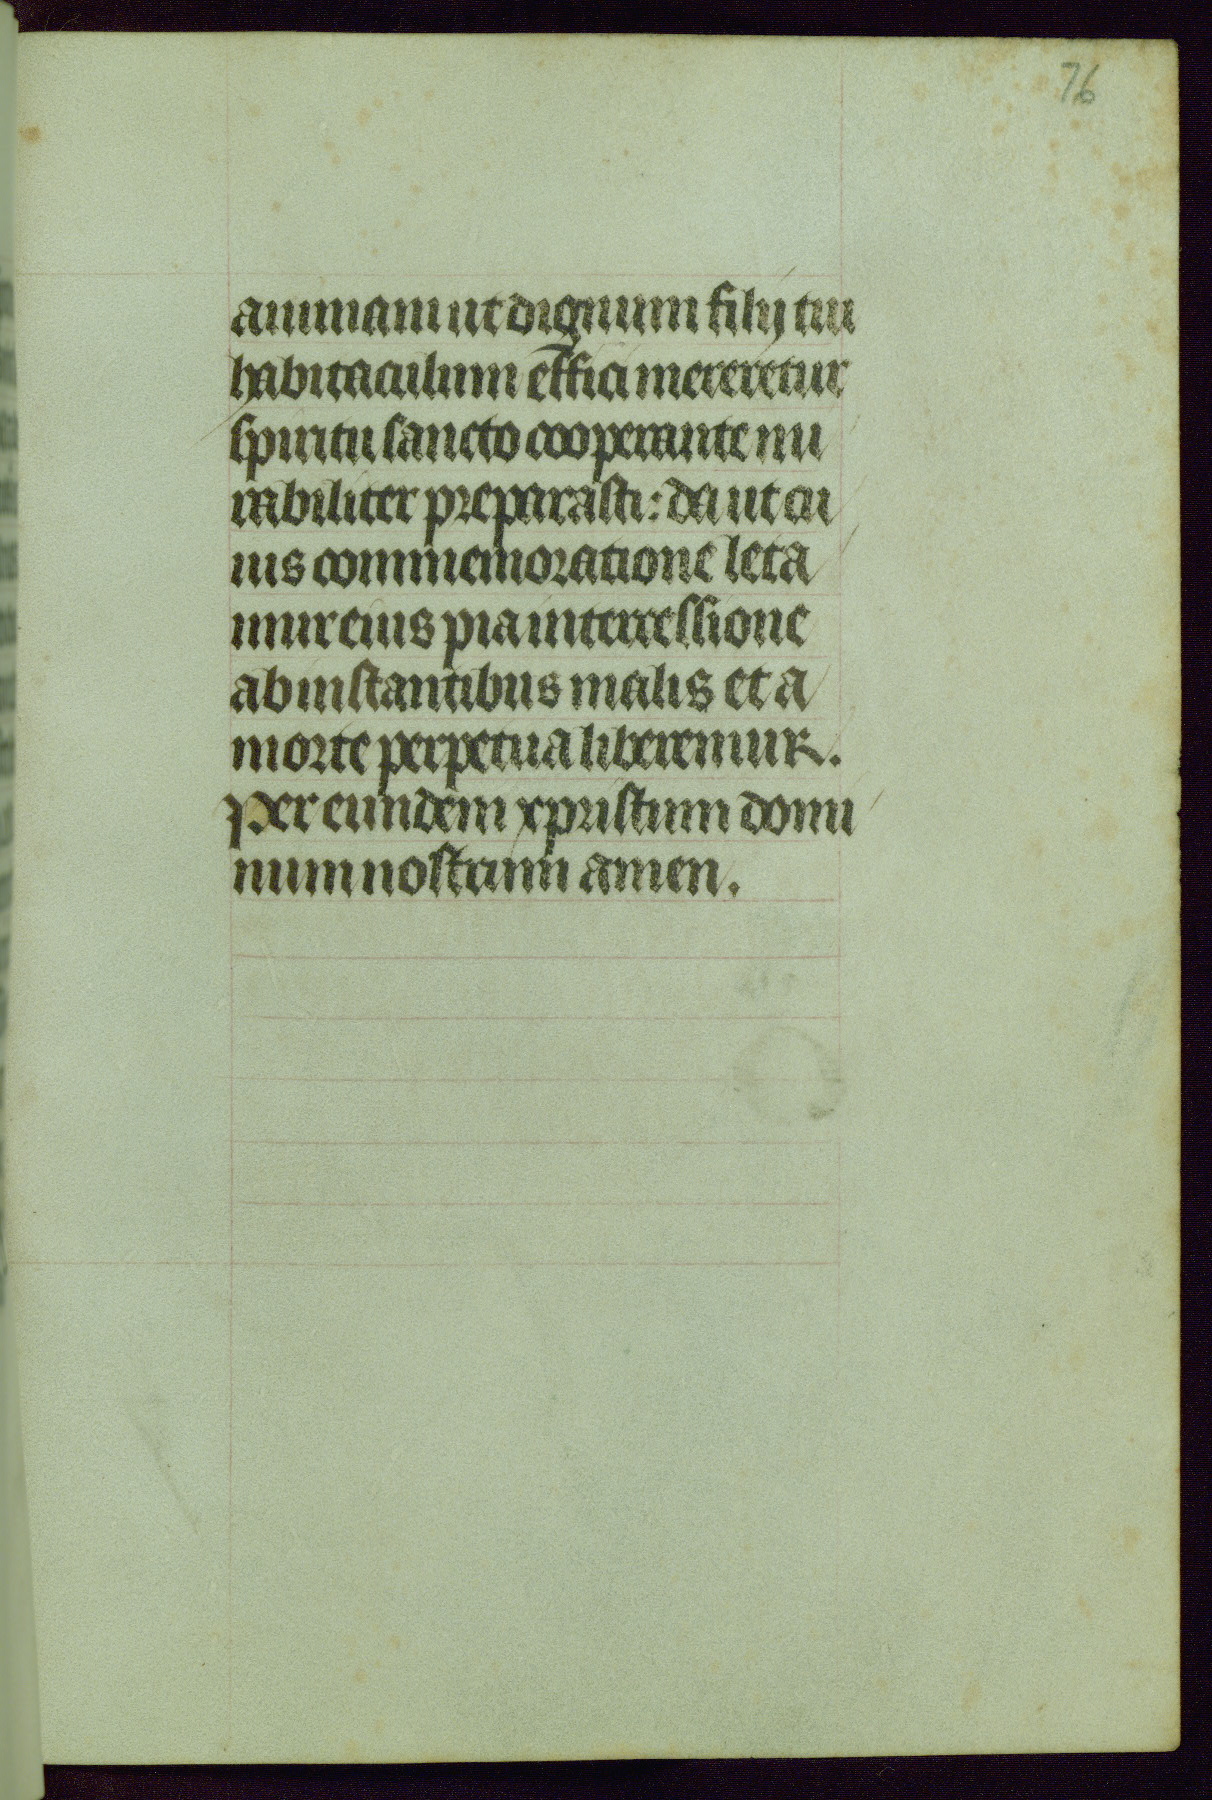 76
animam ut dignum filij tui
habitaculum effici mereretur
spiritu sancto cooperante mi
rabiliter preparasti: da ut cu
ius commemoratione leta
mur eius pia intercessione
ab instantibus malis et a
morte perpetua liberemur.
Per eundem xpristum domi
num nostrum amen.